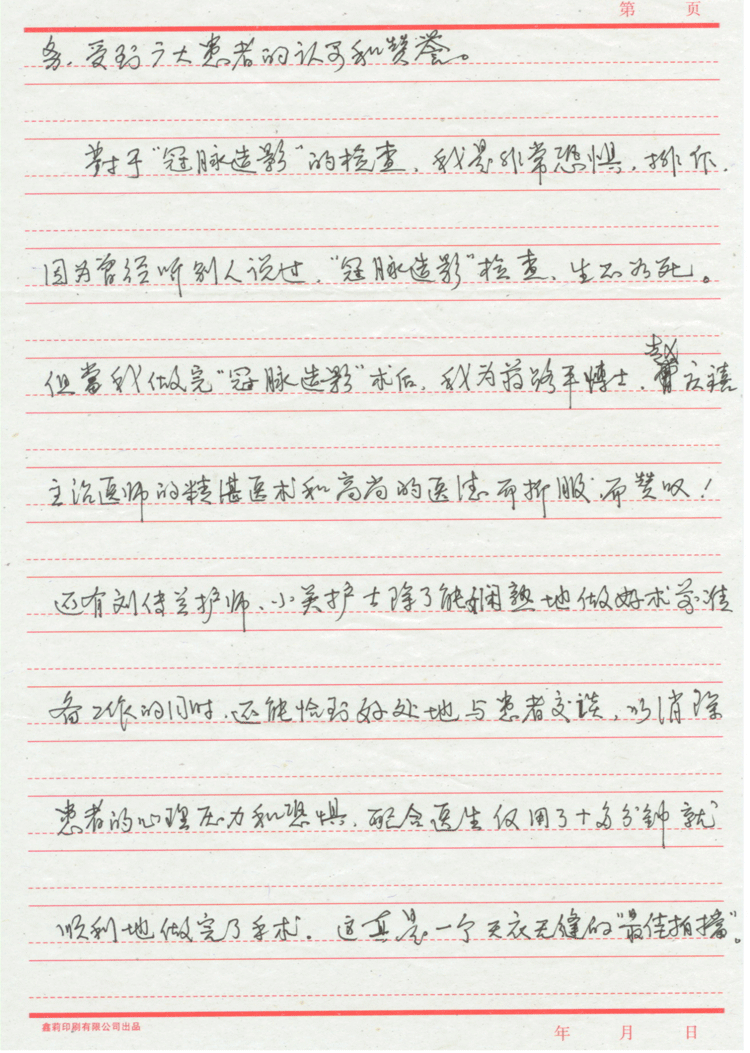 第 页
务，受到广大患者的认可和赞誉。
对于“冠脉造影”的检查，我是非常恐惧，排斥，
因为曾经听别人说过，“冠脉造影”检查，生不如死。
但当我做完“冠脉造影”术后，我为蒋路平博士、赵庆禧
主治医师的精湛医术和高尚的医德而折服，而赞叹！
还有刘传兰护师、小关护士除了能娴熟地做好术前准
备工作的同时，还能恰到好处地与患者交谈，以消除
患者的心理压力和恐惧，配合医生仅用了十多分钟就
顺利地做完了手术，这真是一个天衣无缝的“最佳拍挡”。
鑫莉印刷有限公司出品
年 月 日